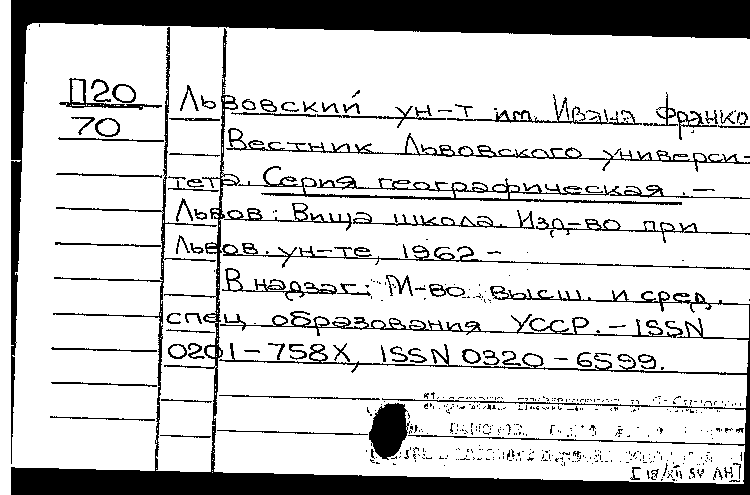 П20
70
Львовский ун-т им. Ивана Франко
Вестник Львовского универси-
тета. Серия географическая. –
Львов: Вища школа. Изд-во при
Львов. ун-те, 1962 –
В надзаг.: М-во высш. и сред.
спец образования УССР. – ISSN
0201-758X, ISSN 0320-6599.